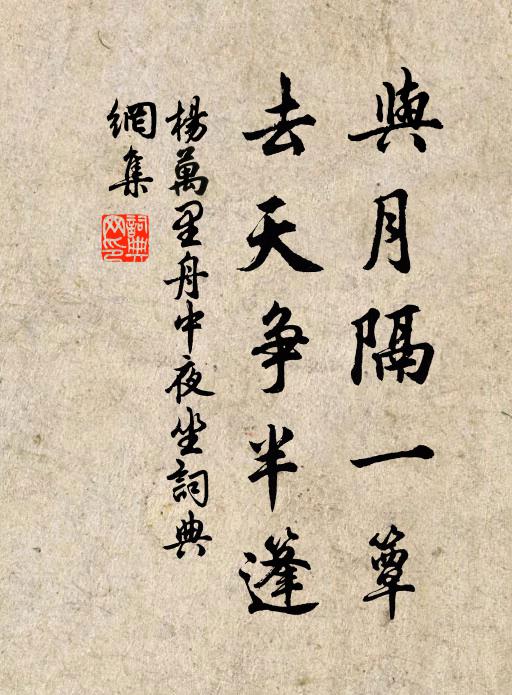 與月隔一簟
去天争半篷
楊萬里舟中夜坐詞典
網集
詞典
网印